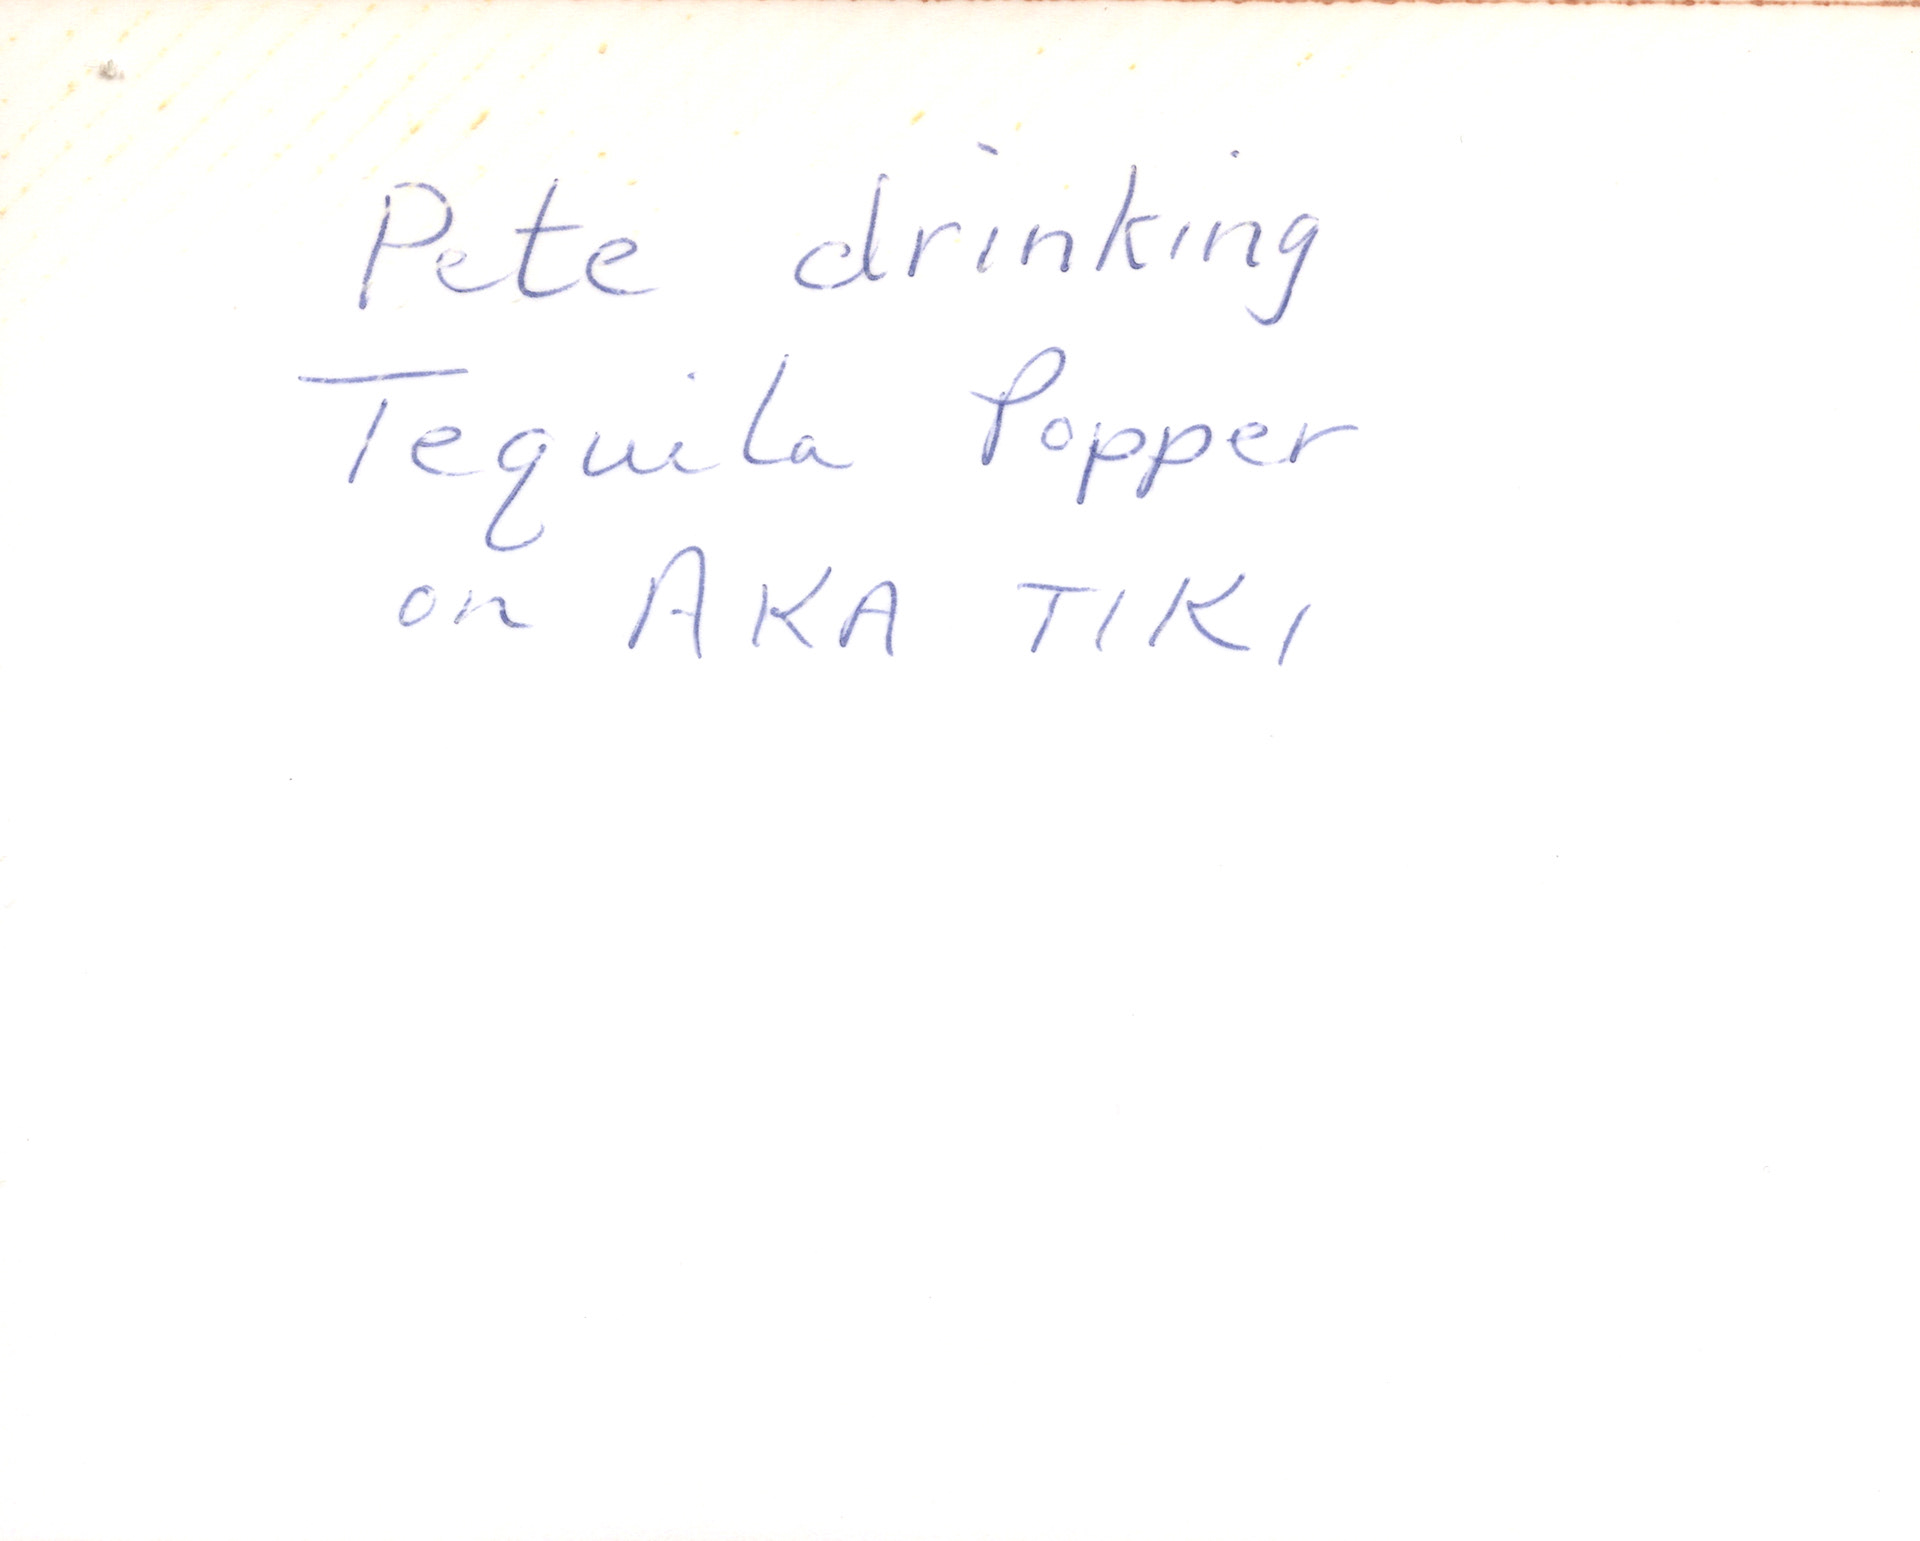 Pete drinking
Tequila Popper
on AKA TIKI